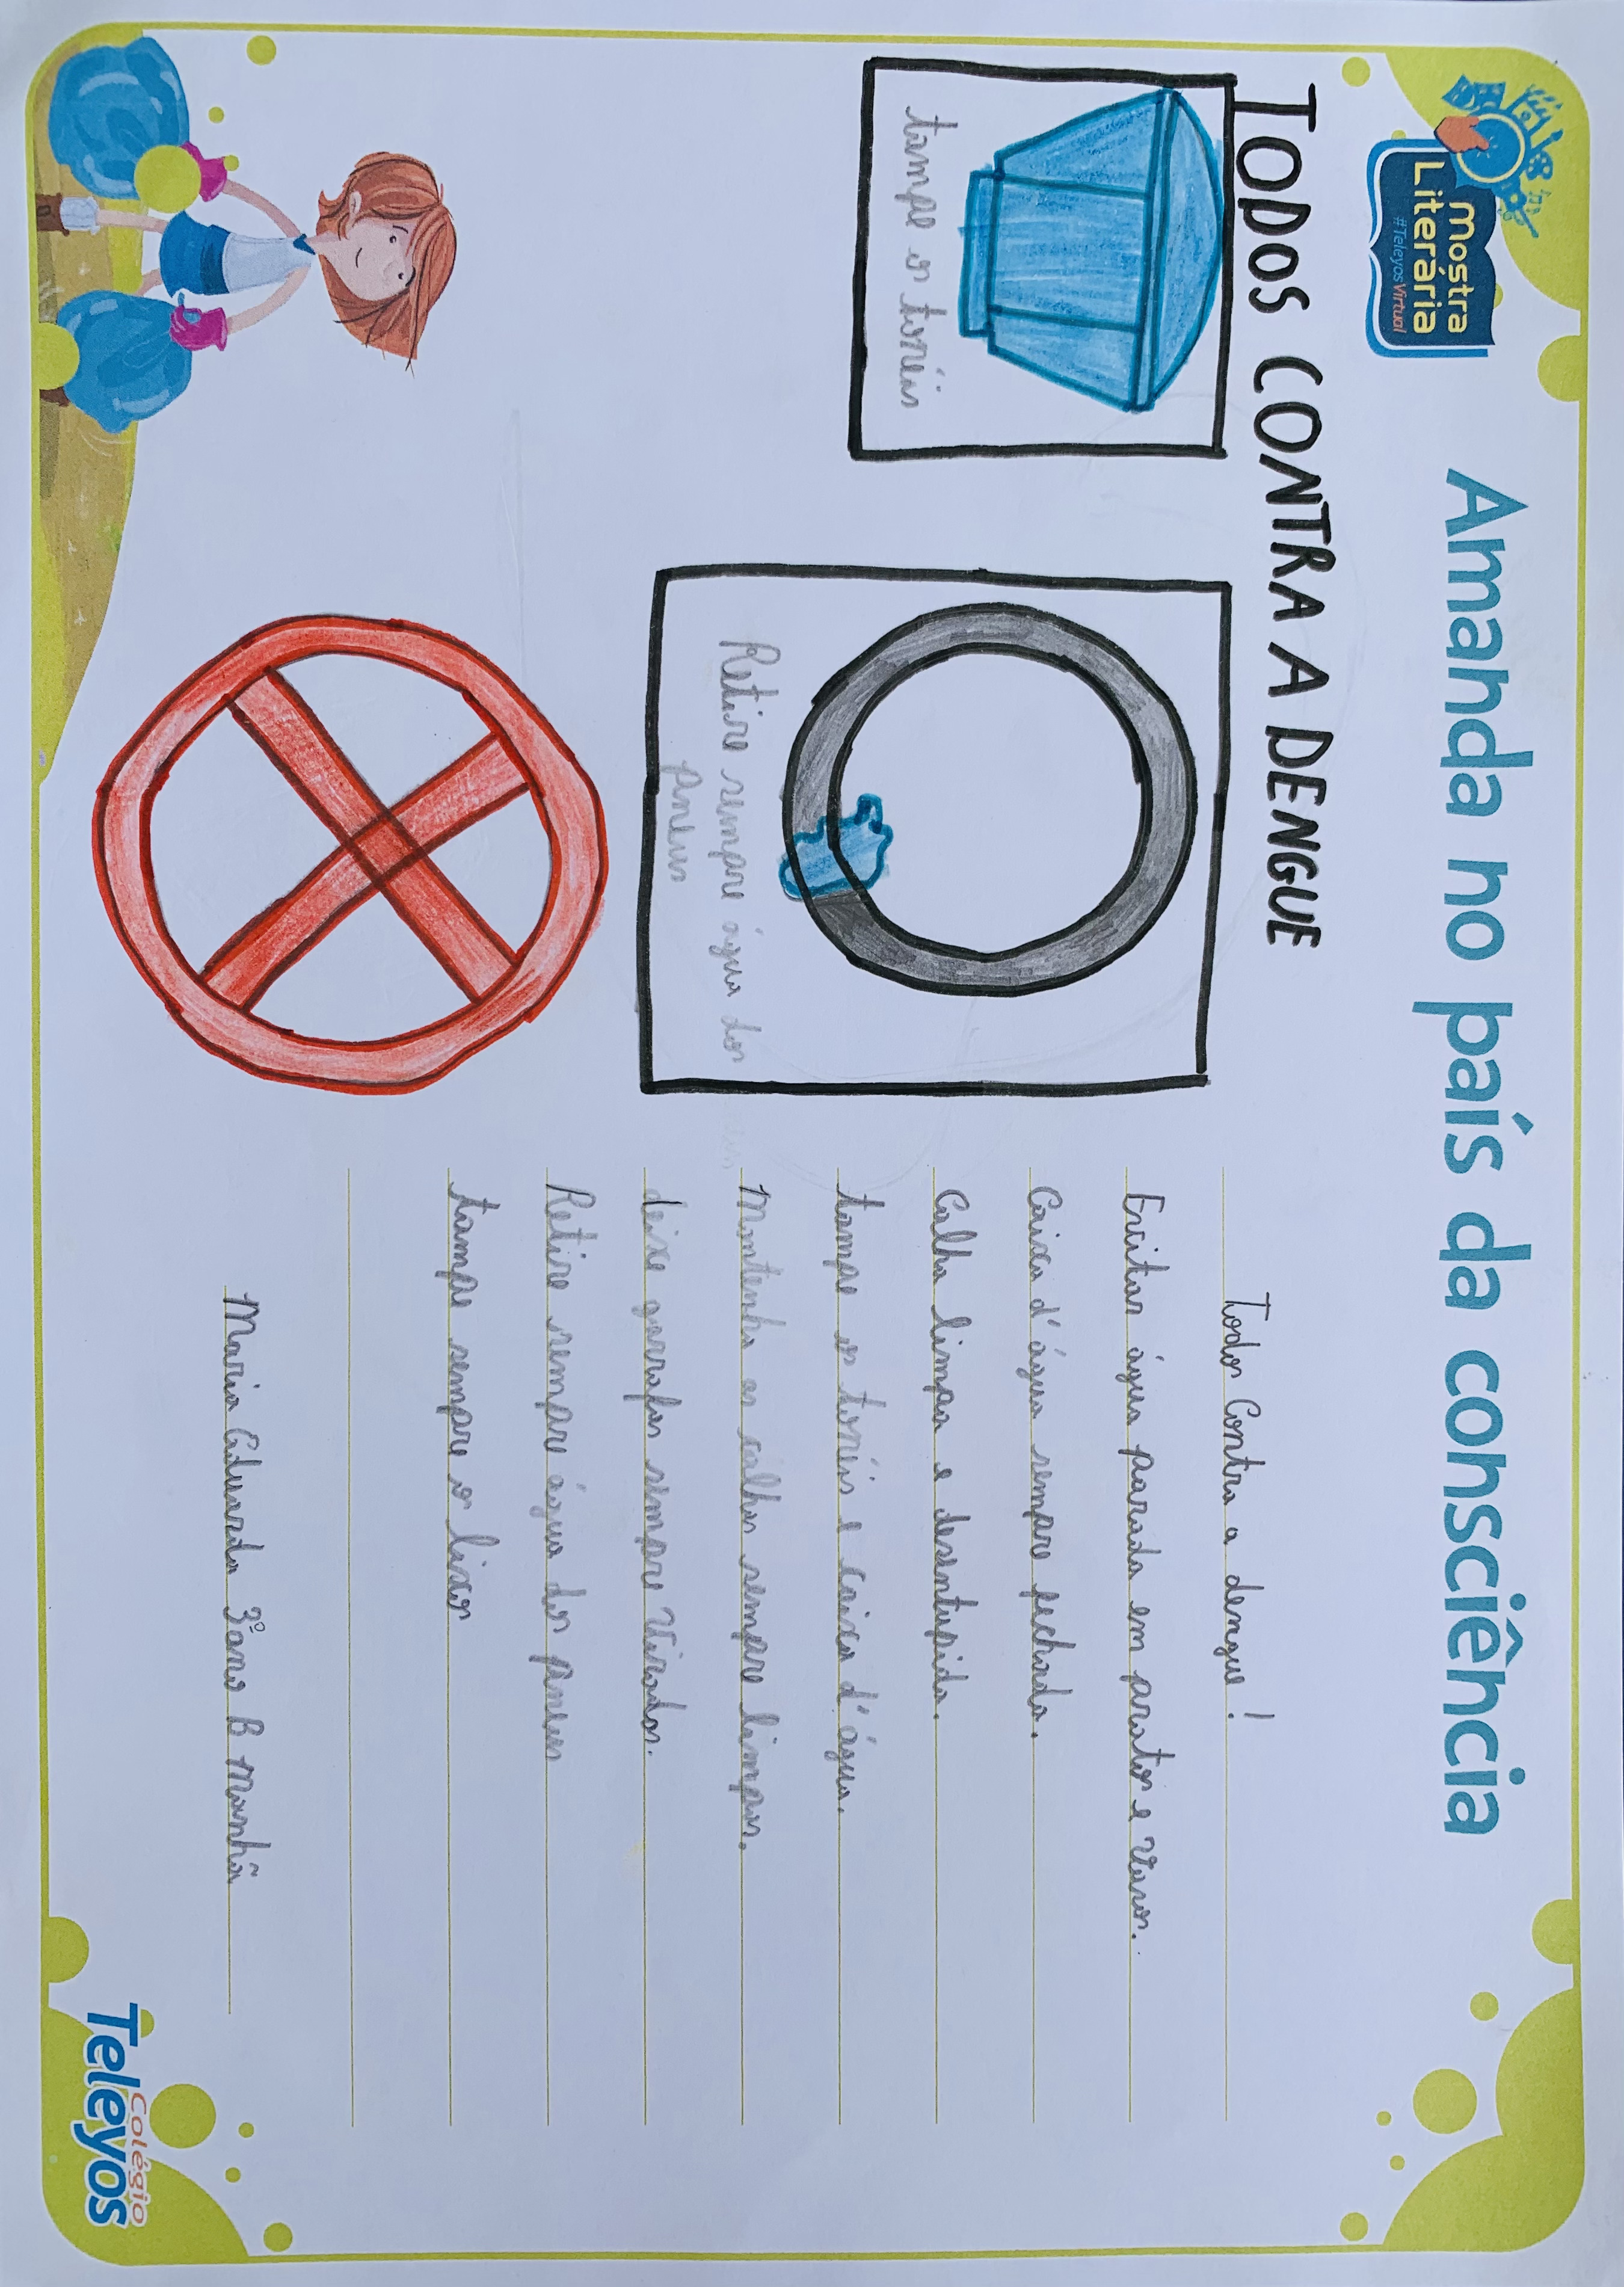 mostra
Literária
#TeleyosVirtual
Amanda no país da consciência
TODOS CONTRA A DENGUE
tampe os tonéis
Retire sempre água dos
pneus
Todos Contra a dengue!
Evitar água parada em pratos e vasos.
Caixa d'água sempre fechada.
Calha limpa e desentupida.
tampe os tonéis e caixa d'água.
Mantenha as calhas sempre limpas.
deixe garrafas sempre viradas.
Retire sempre água dos pneus
tampe sempre o lixos
Maria Eduarda 3º ano B Manhã
Colégio
Teleyos